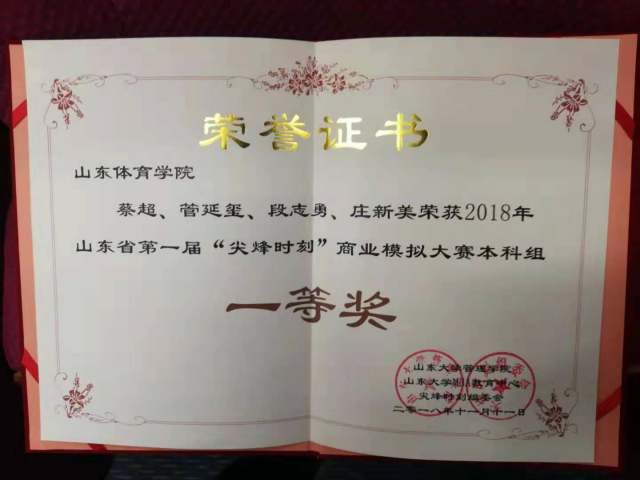 荣誉证书
山东体育学院
蔡超、菅延玺、段志勇、庄新美荣获2018年
山东省第一届“尖烽时刻”商业模拟大赛本科组
一等奖
山东大学管理学院
山东大学 教育中心
尖烽时刻组委会
二〇一八年十一月十一日